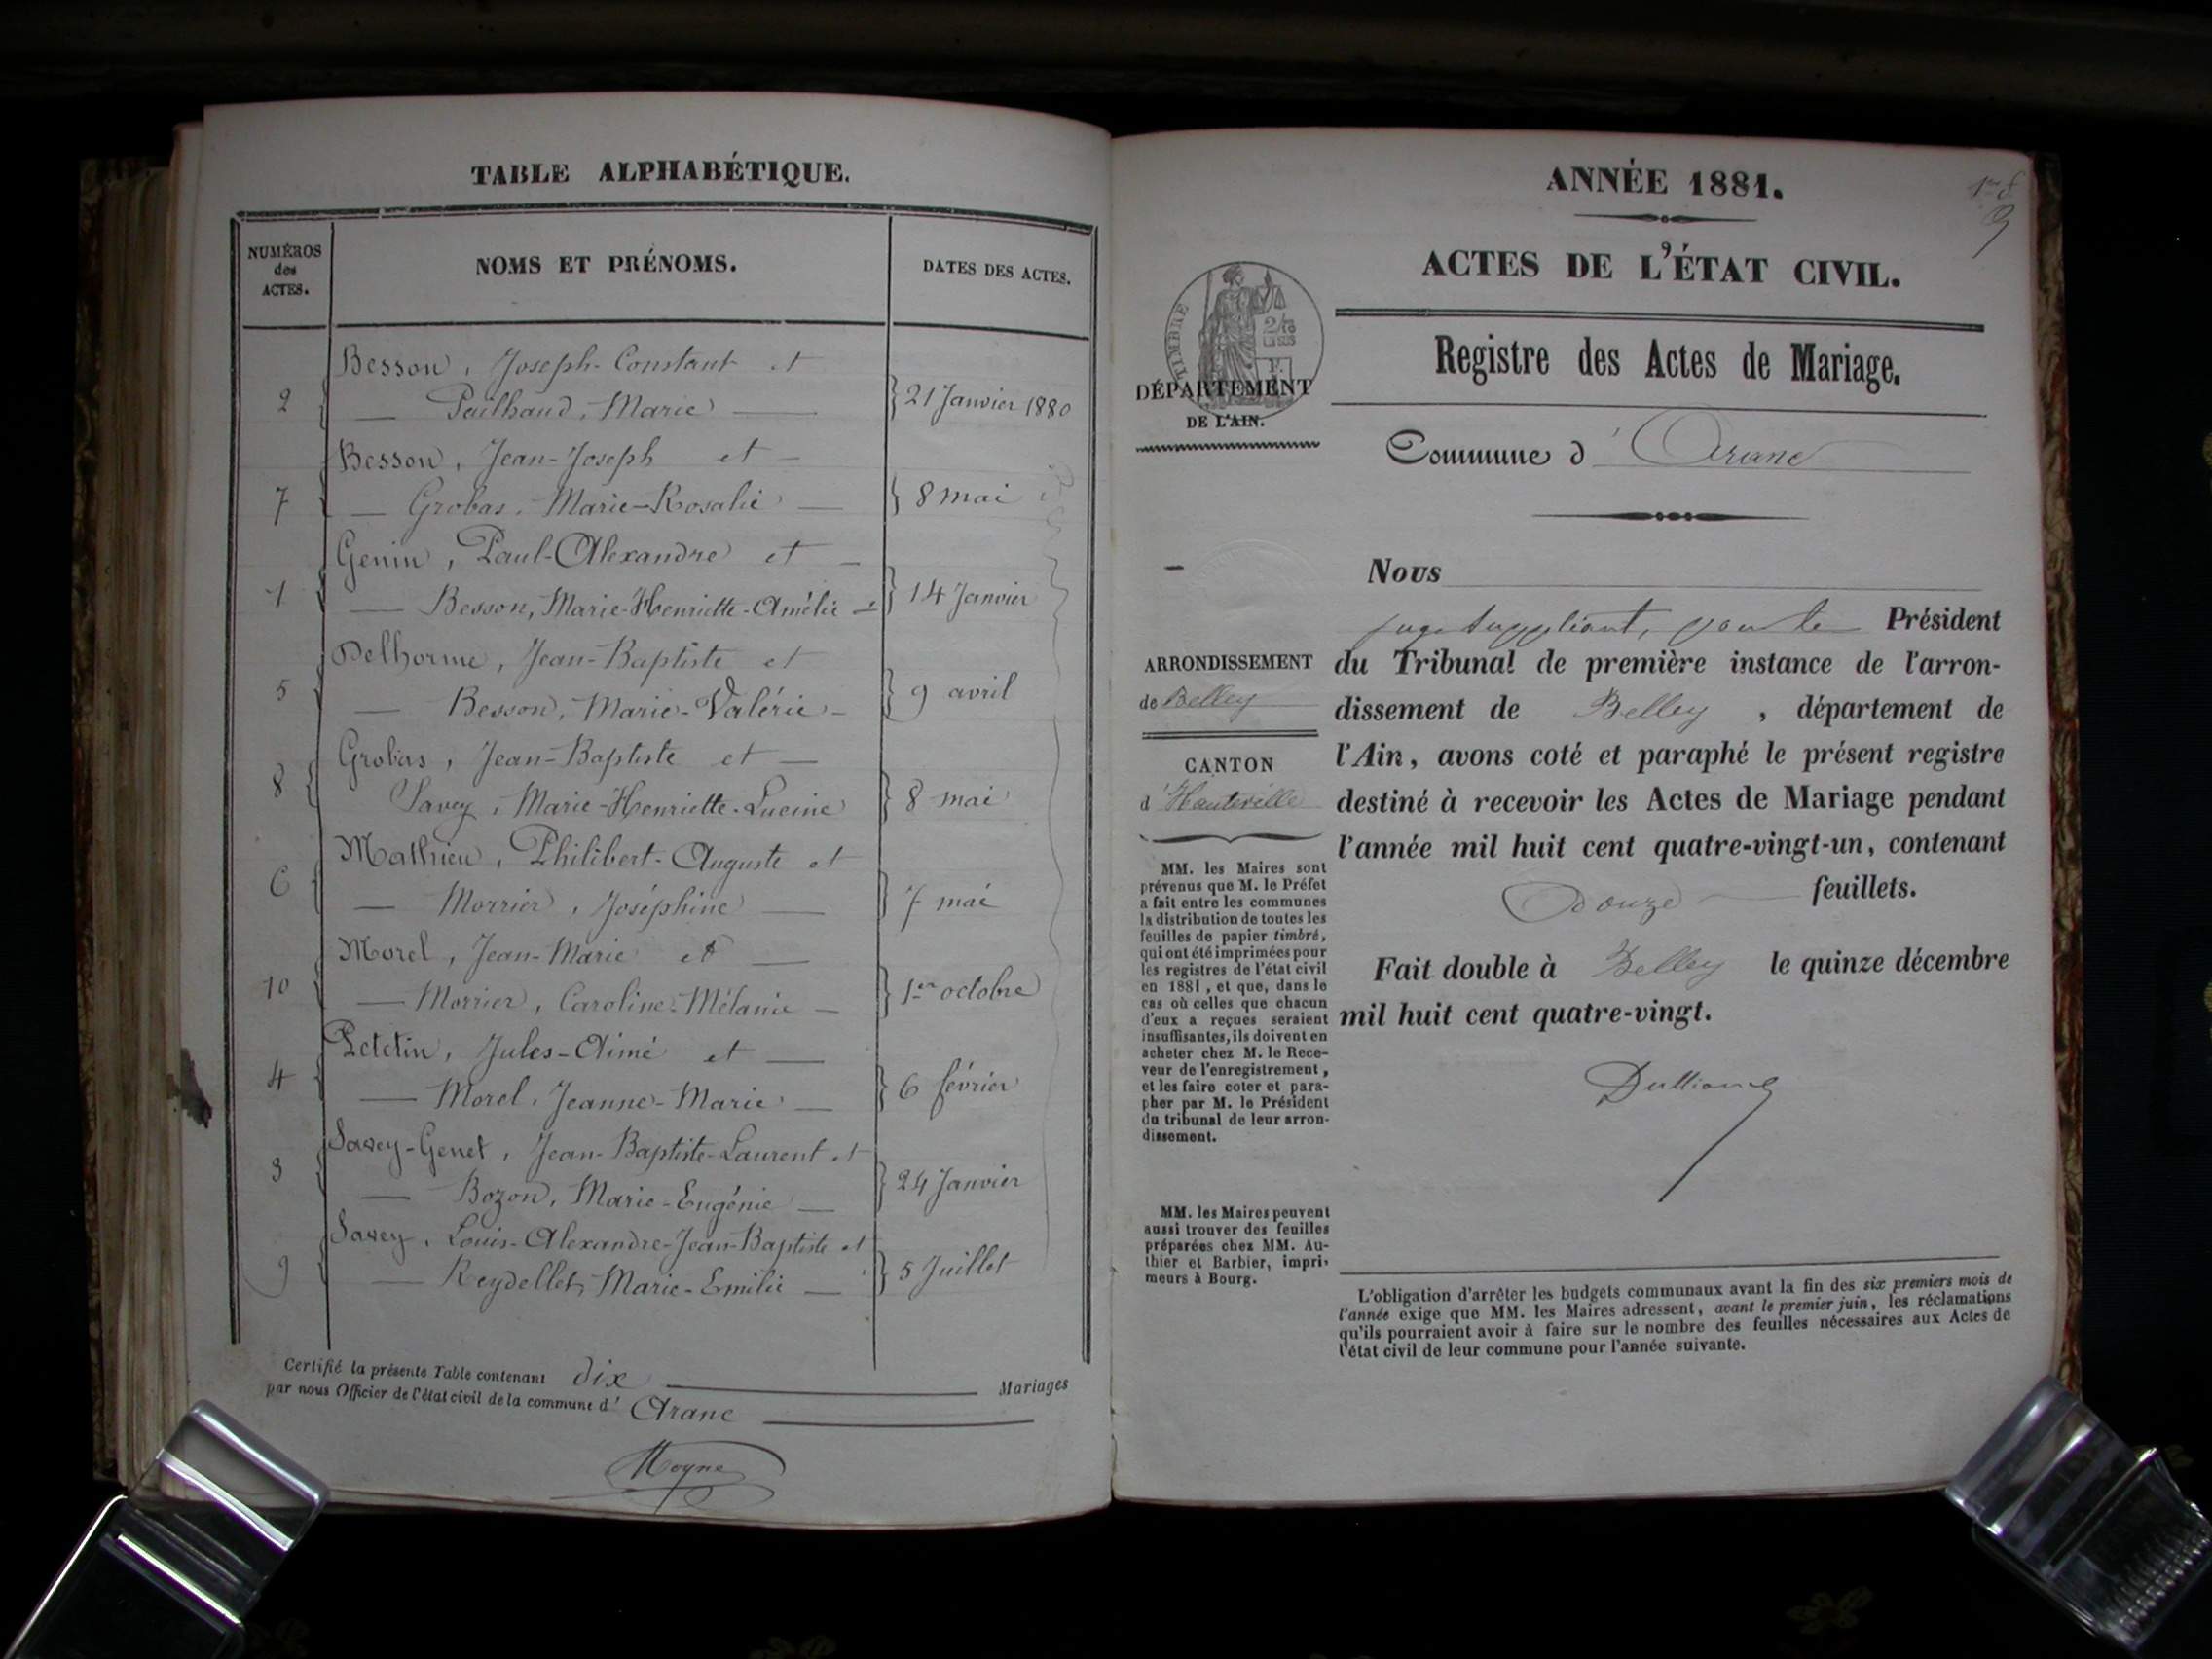 TABLE ALPHABÉTIQUE.
NUMÉROS
des
ACTES.
NOMS ET PRÉNOMS.
DATES DES ACTES.
Besson, Joseph-Constant et
2 — Pailhaud, Marie — 21 Janvier 1880
Besson, Jean-Joseph et —
7 — Grobas, Marie-Rosalie — 8 mai
Genin, Paul-Alexandre et —
1 — Besson, Marie-Henriette-Amélie — 14 Janvier
Delhorme, Jean-Baptiste et
5 — Besson, Marie-Valérie — 9 avril
Grobas, Jean-Baptiste et —
8 Savey, Marie-Henriette-Lucine 8 mai
Mathieu, Philibert-Auguste et
6 — Morrier, Joséphine — 7 mai
Morel, Jean-Marie et —
10 — Morrier, Caroline-Mélanie — 1er octobre
Petetin, Jules-Aimé et —
4 — Morel, Jeanne-Marie — 6 février
Savey-Genet, Jean-Baptiste-Laurent et
3 — Bozon, Marie-Eugénie — 24 Janvier
Savey, Louis-Alexandre-Jean-Baptiste et
9 — Reydellet, Marie-Emilie — 5 Juillet
Certifié la présente Table contenant dix — Mariages
par nous Officier de l'état civil de la commune d' Aranc —
Moyne
ANNÉE 1881.
ACTES DE L'ÉTAT CIVIL.
TIMBRE
Registre des Actes de Mariage.
DÉPARTEMENT
DE L'AIN.
Commune d' Aranc
Nous
juge suppléant, pour le Président
ARRONDISSEMENT
de Belley
CANTON
d'Hauteville
du Tribunal de première instance de l'arron-
dissement de Belley, département de
l'Ain, avons coté et paraphé le présent registre
destiné à recevoir les Actes de Mariage pendant
l'année mil huit cent quatre-vingt-un, contenant
Douze — feuillets.
Fait double à Belley le quinze décembre
mil huit cent quatre-vingt.
MM. les Maires sont
prévenus que M. le Préfet
a fait entre les communes
la distribution de toutes les
feuilles de papier timbré,
qui ont été imprimées pour
les registres de l'état civil
en 1881, et que, dans le
cas où celles que chacun
d'eux a reçues seraient
insuffisantes, ils doivent en
acheter chez M. le Rece-
veur de l'enregistrement,
et les faire coter et para-
pher par M. le Président
du tribunal de leur arron-
dissement.
MM. les Maires peuvent
aussi trouver des feuilles
préparées chez MM. Au-
thier et Barbier, impri-
meurs à Bourg.
L'obligation d'arrêter les budgets communaux avant la fin des six premiers mois de
l'année exige que MM. les Maires adressent, avant le premier juin, les réclamations
qu'ils pourraient avoir à faire sur le nombre des feuilles nécessaires aux Actes de
l'état civil de leur commune pour l'année suivante.